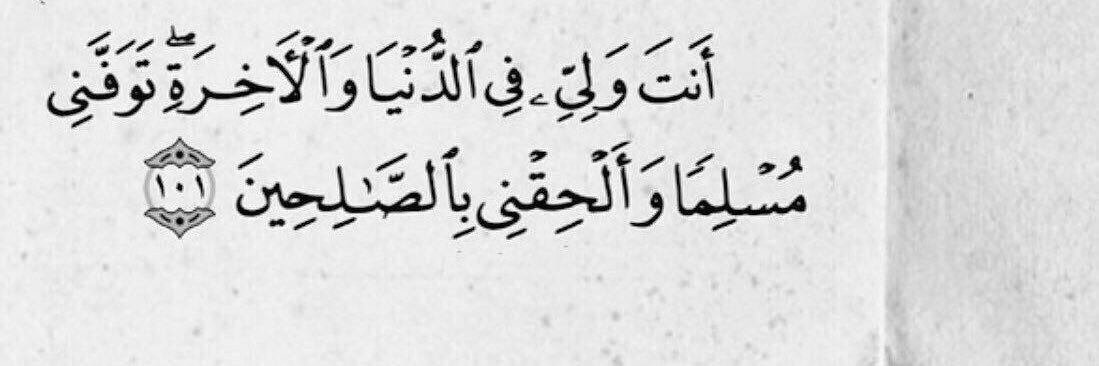 أَنتَ وَلِيِّۦ فِي ٱلدُّنۡيَا وَٱلۡأٓخِرَةِۖ تَوَفَّنِي
مُسۡلِمٗا وَأَلۡحِقۡنِي بِٱلصَّٰلِحِينَ ١٠١